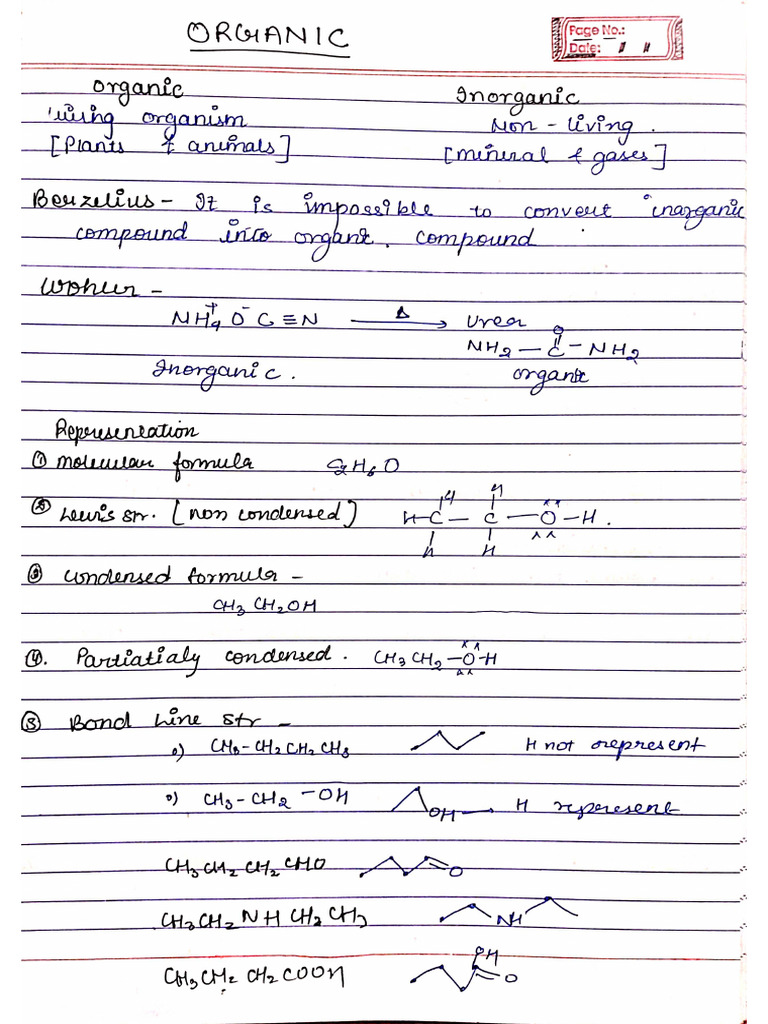 ORGANIC
Page No.:
Date:
Organic Inorganic
living organism Non-living.
[Plants & animals] [mineral & gases]
Berzelius - It is impossible to convert inorganic
compound into organic compound
Wohler -
NH₄⁺ O⁻ C≡N Δ → Urea
O
NH₂ — C — NH₂
Inorganic. organic
Representation
① molecular formula C₂H₆O
② Lewis str. [non condensed] H H
H–C — C — O – H.
H H
③ Condensed formula -
CH₃ CH₂OH
④. Partiatialy condensed. CH₃ CH₂ – O – H
⑤ Bond Line str -
o) CH₃ – CH₂ CH₂ CH₃ H not represent
o) CH₃ – CH₂ – OH OH → H represent
CH₃CH₂CH₂CHO O
CH₃CH₂NH CH₂CH₃ NH
OH
CH₃CH₂ CH₂COOH O